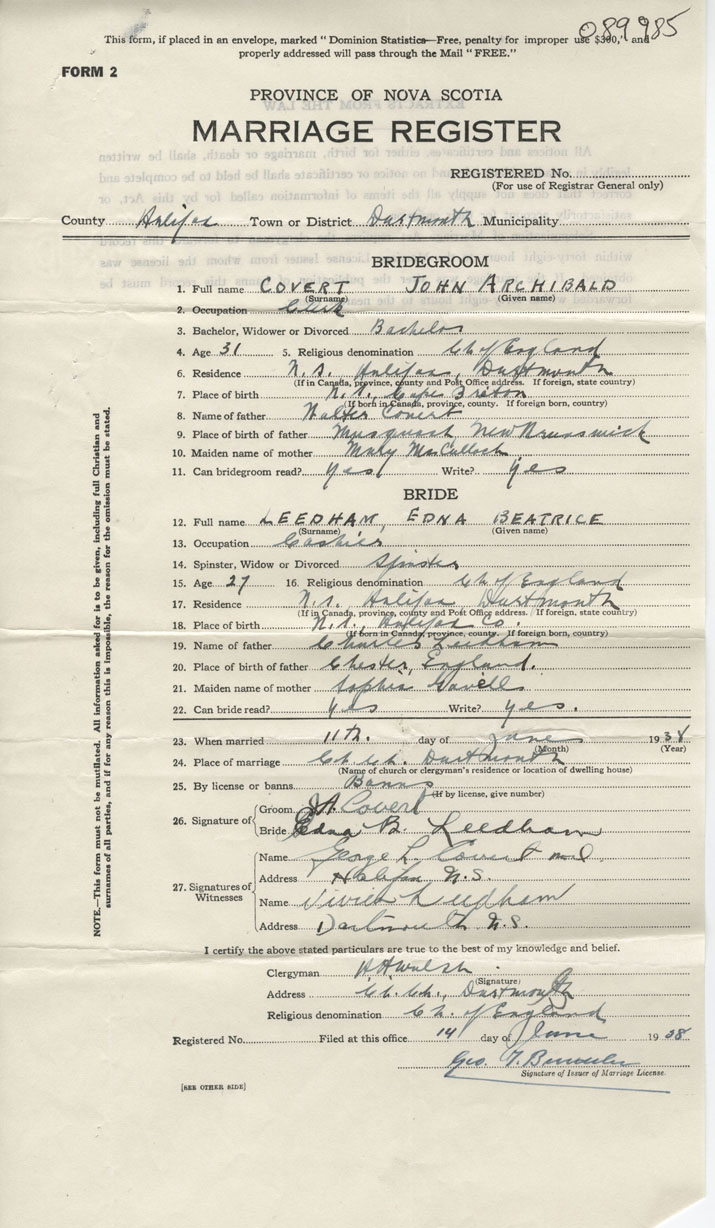 089985
This form, if placed in an envelope, marked "Dominion Statistics—Free, penalty for improper use $300," and
properly addressed will pass through the Mail "FREE."
FORM 2
PROVINCE OF NOVA SCOTIA
MARRIAGE REGISTER
REGISTERED No.
(For use of Registrar General only)
County Halifax Town or District Dartmouth Municipality
BRIDEGROOM
1. Full name COVERT JOHN ARCHIBALD
(Surname) (Given name)
2. Occupation Clerk
3. Bachelor, Widower or Divorced Bachelor
4. Age 31 5. Religious denomination Ch. of England
6. Residence N.S. Halifax, Dartmouth
(If in Canada, province, county and Post Office address. If foreign, state country)
7. Place of birth N.S., Cape Breton
(If born in Canada, province, county. If foreign born, country)
8. Name of father Walter Covert
9. Place of birth of father Musquash, New Brunswick
10. Maiden name of mother Mary MacCulloch
11. Can bridegroom read? yes Write? yes
BRIDE
12. Full name LEEDHAM, EDNA BEATRICE
(Surname) (Given name)
13. Occupation Cashier
14. Spinster, Widow or Divorced Spinster
15. Age 27 16. Religious denomination Ch. of England
17. Residence N.S. Halifax Dartmouth
(If in Canada, province, county and Post Office address. If foreign, state country)
18. Place of birth N.S., Halifax Co.
(If born in Canada, province, county. If foreign born, country)
19. Name of father Charles Leedham
20. Place of birth of father Chester, England.
21. Maiden name of mother Sophia
22. Can bride read? yes Write? yes.
23. When married 11th. day of June 1938
(Month) (Year)
24. Place of marriage Ch. Ch. Dartmouth
(Name of church or clergyman's residence or location of dwelling house)
25. By license or banns Banns
(If by license, give number)
26. Signature of
Groom J A Covert
Bride Edna B. Leedham
27. Signatures of Witnesses
Name George L. Covert M.D.
Address Halifax N.S.
Name Vivian Leedham
Address Dartmouth N.S.
I certify the above stated particulars are true to the best of my knowledge and belief.
Clergyman Walsh
(Signature)
Address Ch. Ch., Dartmouth
Religious denomination Ch. of England
Registered No. Filed at this office 14 day of June 1938
Geo.
Signature of Issuer of Marriage License.
[SEE OTHER SIDE]
NOTE.—This form must not be mutilated. All information asked for is to be given, including full Christian and
surnames of all parties, and if for any reason this is impossible, the reason for the omission must be stated.